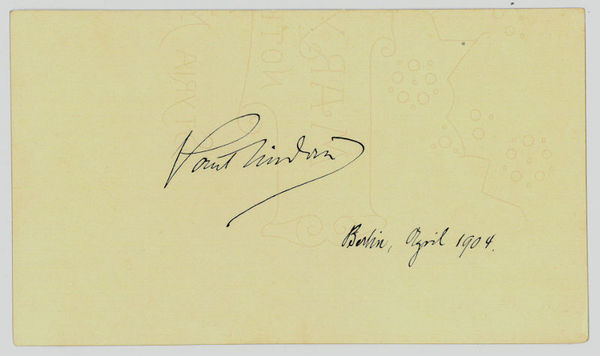 Paul Lindau
Berlin, April 1904.